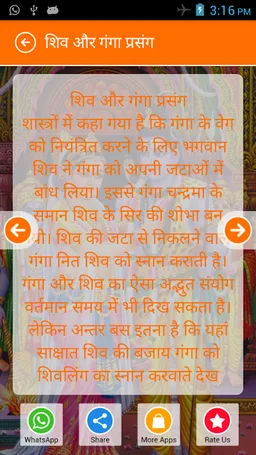 3:16 PM
शिव और गंगा प्रसंग
शिव और गंगा प्रसंग
शास्त्रों में कहा गया है कि गंगा के वेग
को नियंत्रित करने के लिए भगवान
शिव ने गंगा को अपनी जटाओं में
बांध लिया। इससे गंगा चन्द्रमा के
समान शिव के सिर की शोभा बन
शिव की जटा से निकलने
गंगा नित शिव को स्नान कराती है।
गंगा और शिव का ऐसा अद्भुत संयोग
वर्तमान समय में भी दिख सकता है।
लेकिन अन्तर बस इतना है कि यहां
साक्षात शिव की बजाय गंगा को
शिवलिंग का स्नान करवाते देख
WhatsApp
Share
More Apps
Rate Us